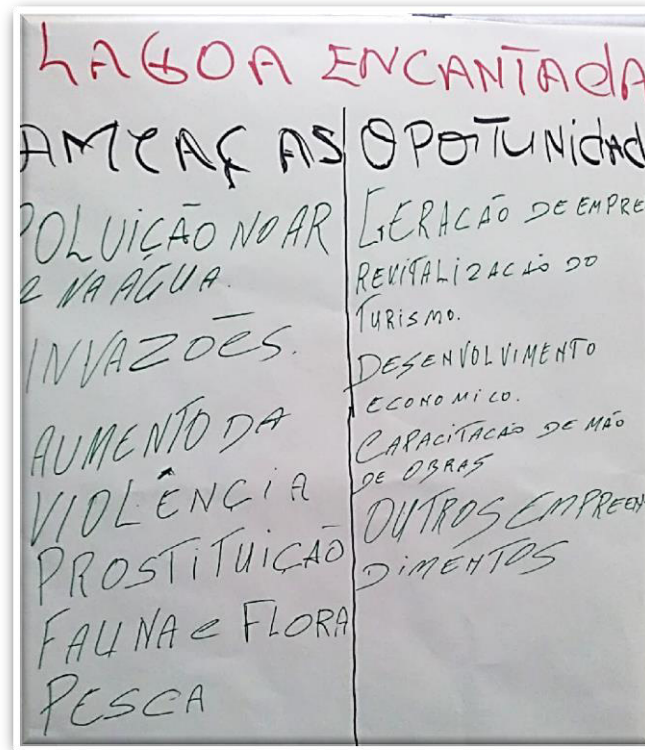 LAGOA ENCANTADA
AMEAÇAS
POLUIÇÃO NO AR
E NA ÁGUA.
INVAZÕES.
AUMENTO DA
VIOLÊNCIA
PROSTITUIÇÃO
FAUNA e FLORA
PESCA
OPOTUNIDAD
GERACÃO DE EMPRE
REVITALIZACÃO DO
TURISMO.
DESENVOLVIMENTO
ECONOMICO.
CAPACITACÃO DE MÃO
DE OBRAS
OUTROS EMPREEN
DIMENTOS